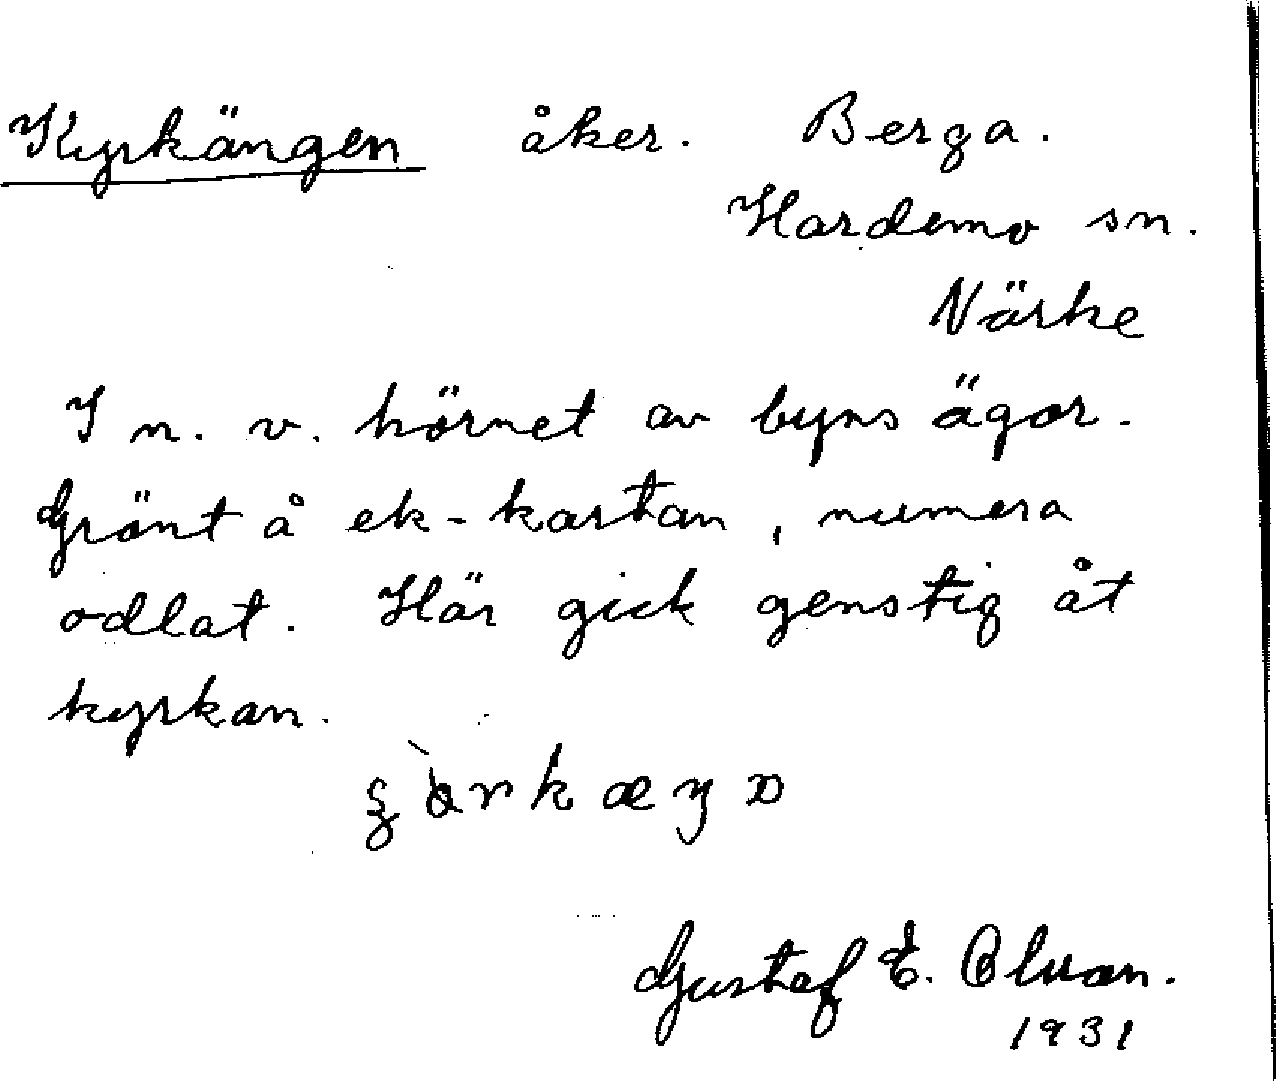 Kyrkängen åker. Berga.
Hardemo sn.
Närke
I n. v. hörnet av byns ägor.
Grönt å ek-kartan, numera
odlat. Här gick genstig åt
kyrkan.
Gustaf E.
1931